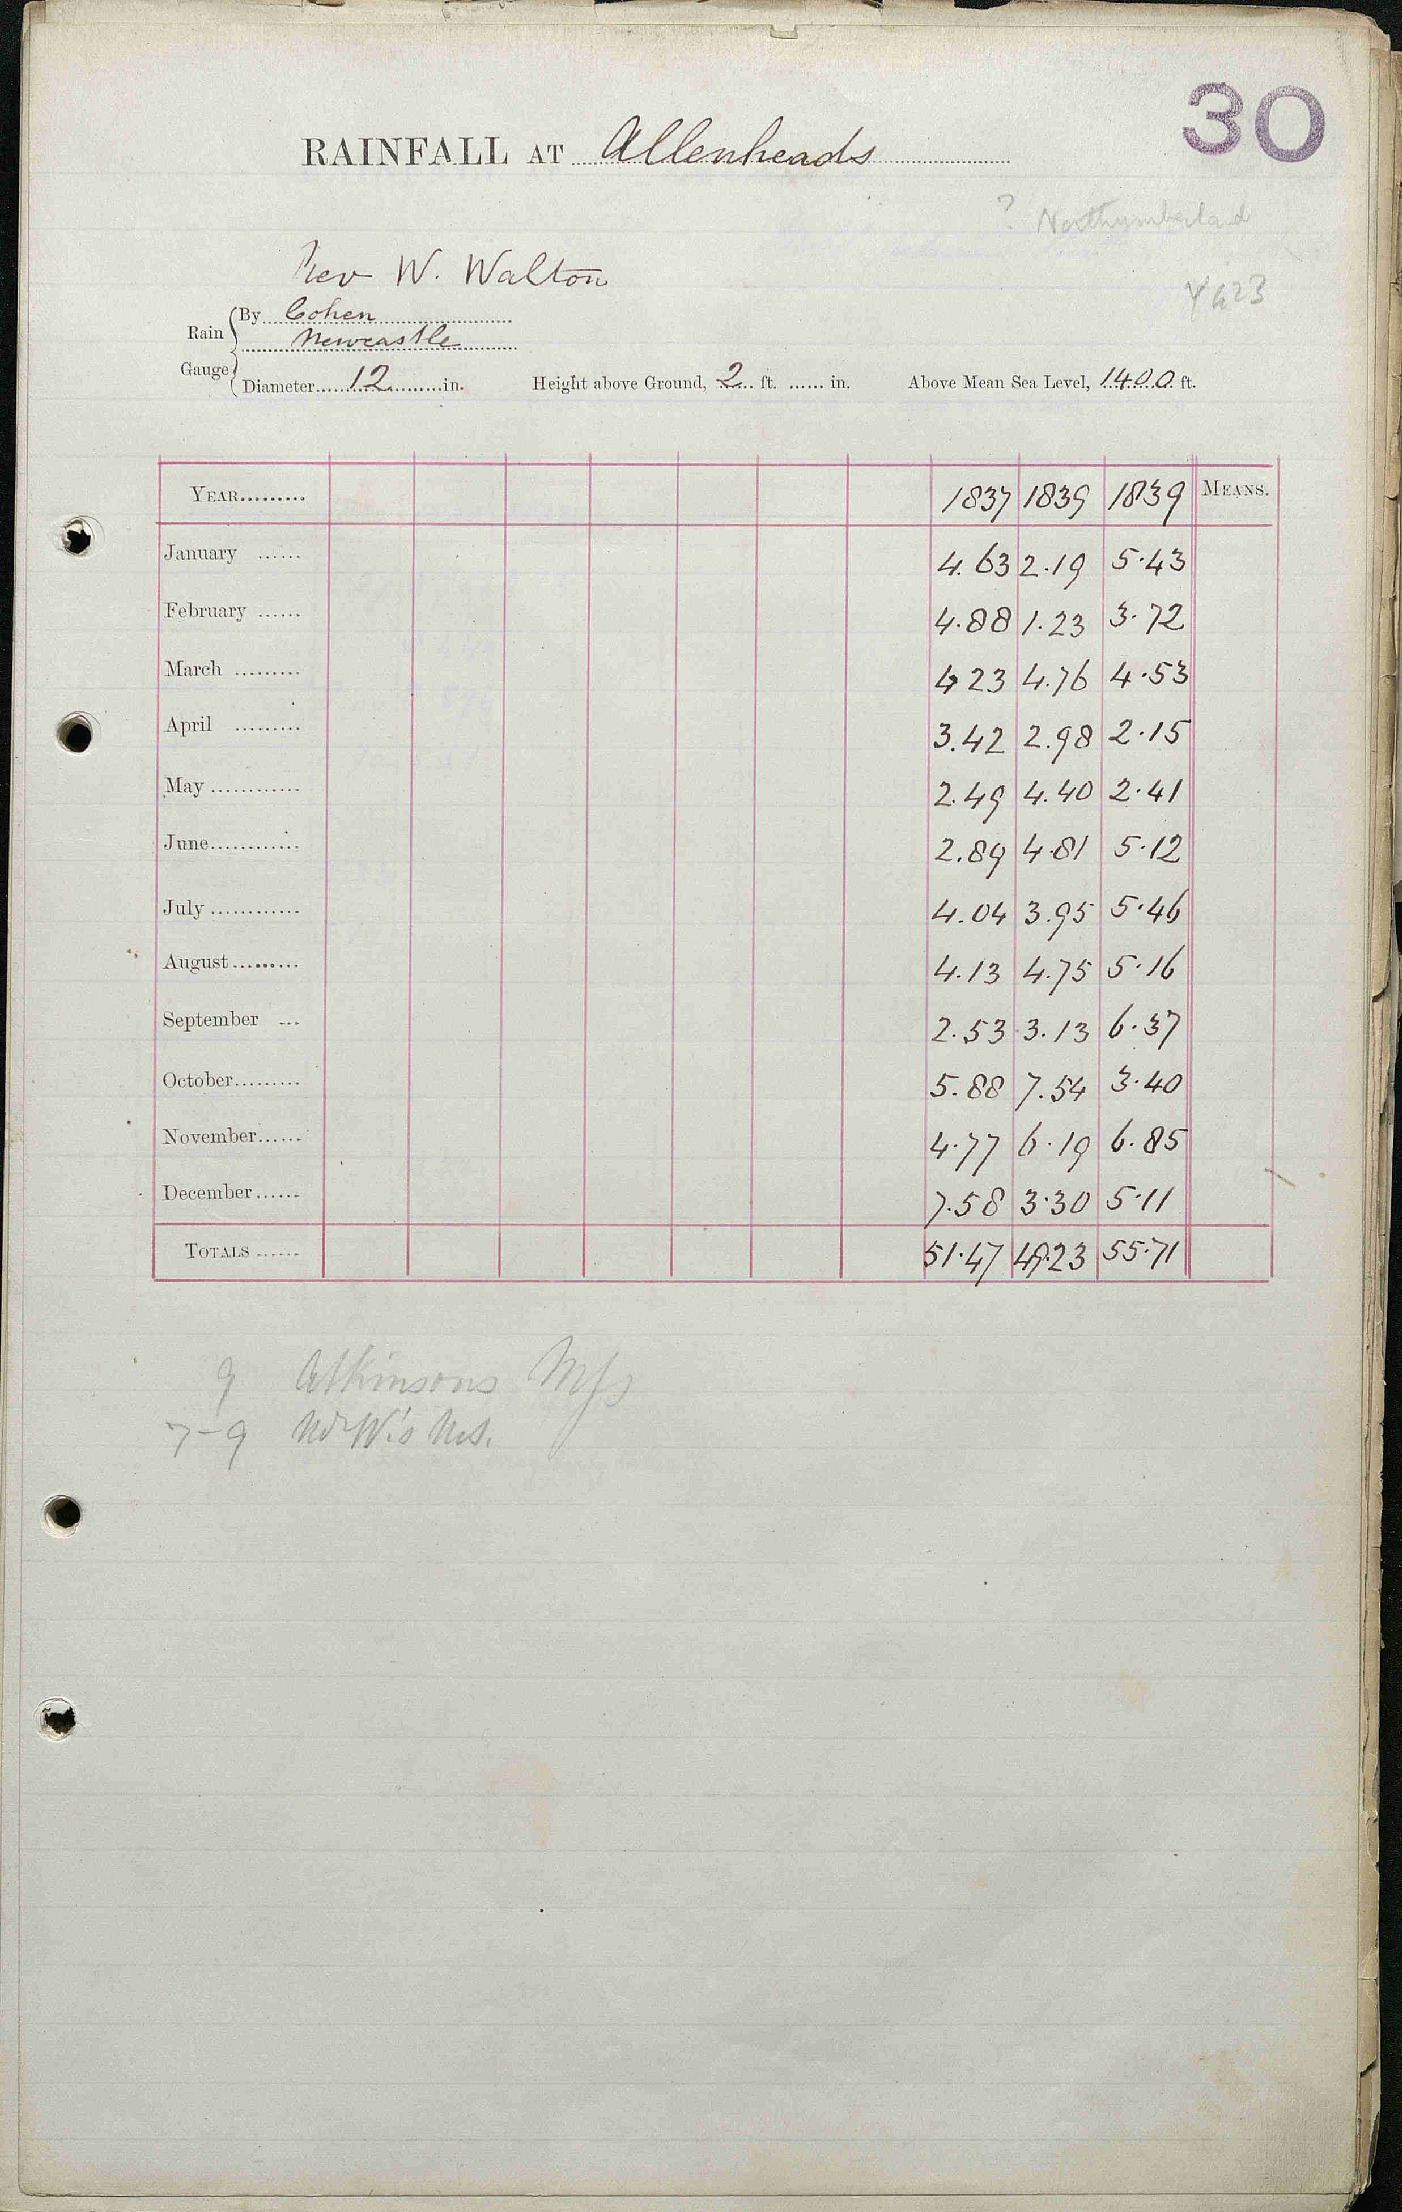 30
RAINFALL AT Allenheads
? Northumberland
Rev W. Walton
Rain Gauge
By Cohen
Newcastle
Diameter 12 in. Height above Ground, 2 ft. in. Above Mean Sea Level, 1400 ft.
YEAR 1837 1839 1839 MEANS.
January 4.63 2.19 5.43
February 4.88 1.23 3.72
March 4 23 4.76 4.53
April 3.42 2.98 2.15
May 2.49 4.40 2.41
June 2.89 4.81 5.12
July 4.04 3.95 5.46
August 4.13 4.75 5.16
September 2.53 3.13 6.37
October 5.88 7.54 3.40
November 4.77 6.19 6.85
December 7.58 3.30 5.11
TOTALS 51.47 49.23 55.71
9 Atkinsons
7-9